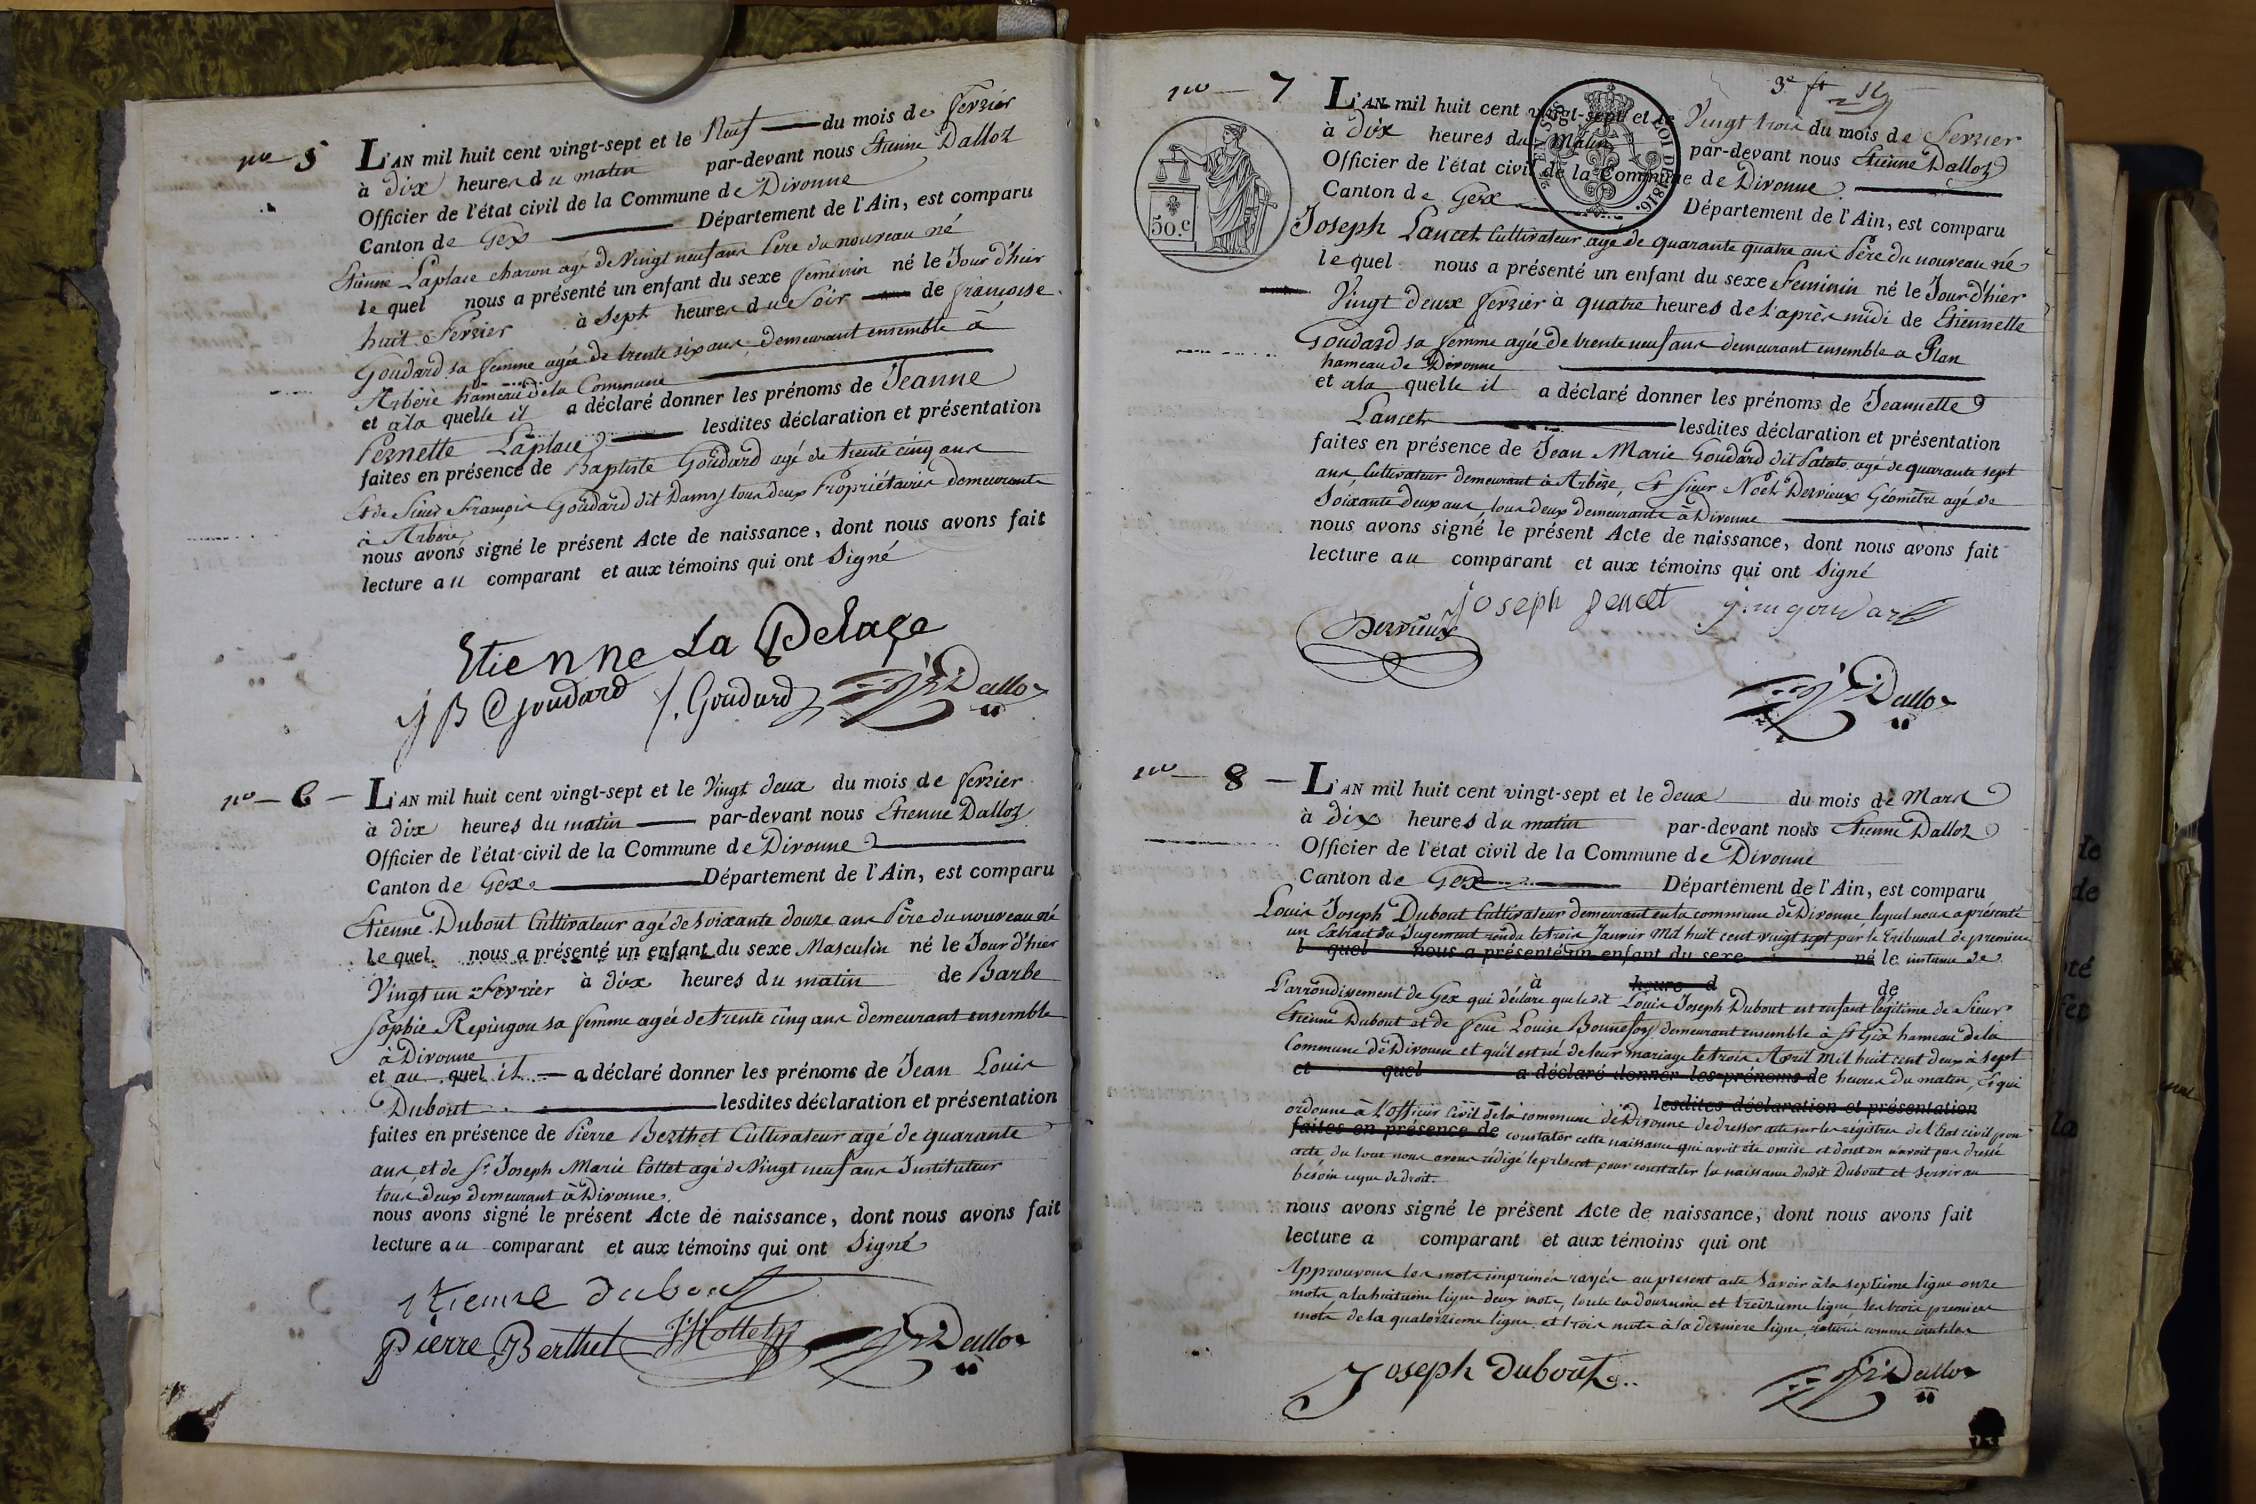 no 5
L'AN mil huit cent vingt-sept et le Neuf du mois de fevrier
à dix heures du matin par-devant nous Etienne Dalloz
Officier de l'état civil de la Commune de Divonne
Canton de Gex Département de l'Ain, est comparu
Etienne Laplace charon agé de Vingt neuf ans Pere du nouveau né
le quel nous a présenté un enfant du sexe feminin né le Jour d'hier
huit Fevrier à Sept heures du Soir de françoise
Goudard sa femme agée de trente six ans demeurant ensemble à
Arbère hameau de la Commune
et à la quelle il a déclaré donner les prénoms de Jeanne
Pernette Laplace lesdites déclaration et présentation
faites en présence de Baptiste Goudard agé de trente cinq ans
Et de Sieur François Goudard dit Damy tous deux Propriétaires demeurants
à Arbère
nous avons signé le présent Acte de naissance, dont nous avons fait
lecture au comparant et aux témoins qui ont Signé
Etienne La Pelace
J B Goudard f. Goudard Dalloz
no 6
L'AN mil huit cent vingt-sept et le Vingt deux du mois de fevrier
à dix heures du matin par-devant nous Etienne Dalloz
Officier de l'état civil de la Commune de Divonne
Canton de Gex Département de l'Ain, est comparu
Etienne Dubout Cultivateur agé de soixante douze ans Père du nouveau né
le quel nous a présenté un enfant du sexe Masculin né le Jour d'hier
Vingt un Fevrier à dix heures du matin de Barbe
Sophie Repingon sa femme agée de trente cinq ans demeurant ensemble
à Divonne
et au quel il a déclaré donner les prénoms de Jean Louis
Dubout lesdites déclaration et présentation
faites en présence de Pierre Berthet Cultivateur agé de quarante
ans, et de Sr Joseph Marie Cottet agé de Vingt neuf ans Instituteur
tous deux demeurant à Divonne
nous avons signé le présent Acte de naissance, dont nous avons fait
lecture au comparant et aux témoins qui ont Signé
etienne dubout
Pierre Berthet Cottet Dalloz
3e ft
no 7
L'AN mil huit cent vingt-sept et le Vingt trois du mois de Fevrier
à dix heures du Matin par-devant nous Etienne Dalloz
Officier de l'état civil de la Commune de Divonne
Canton de Gex Département de l'Ain, est comparu
LOI DE 1816.
50.c
Joseph Lancet Cultivateur agé de quarante quatre ans Père du nouveau né
le quel nous a présenté un enfant du sexe Feminin né le Jour d'hier
Vingt deux fevrier à quatre heures de l'après midi de Etiennette
Goudard sa femme agée de trente neuf ans demeurant ensemble a Plan
hameau de Divonne
et a la quelle il a déclaré donner les prénoms de Jeannette
Lancet lesdites déclaration et présentation
faites en présence de Jean Marie Goudard dit Patalo agé de quarante sept
ans, Cultivateur demeurant à Arbère, Et sieur Noël Dervieux Géomètre agé de
Soixante deux ans, tous deux demeurants à Divonne
nous avons signé le présent Acte de naissance, dont nous avons fait
lecture au comparant et aux témoins qui ont Signé
Joseph Lencet goudard
Dervieux
Dalloz
no 8
L'AN mil huit cent vingt-sept et le deux du mois de Mars
à dix heures du matin par-devant nous Etienne Dalloz
Officier de l'état civil de la Commune de Divonne
Canton de Gex Département de l'Ain, est comparu
Louis Joseph Dubout Cultivateur demeurant en la commune de Divonne lequel nous a présenté
un Extrait du Jugement rendu le trois Janvier Mil huit cent vingt sept par le Tribunal de premiere
l quel nous a présenté un enfant du sexe né le instance de
à heure d de
L'arrondissement de Gex qui déclare que le dit Louis Joseph Dubout est enfant légitime de Sieur
Etienne Dubout et de feue Louise Bonnefoy demeurant ensemble à St Gix hameau de la
Commune de Divonne et qu'il est né de leur mariage le trois Avril Mil huit cent deux à sept
et quel a déclaré donner les prénoms de heures du matin, Et qui
lesdites déclaration et présentation
ordonne à L'officier Civil de la commune de Divonne de dresser acte sur les régistres de l'Etat civil pour
faites en présence de constater cette naissance qui avoit été omise et dont on n'avoit pas dressé
acte du tout nous avons rédigé le présent pour constater la naissance dudit Dubout et servir au
bésoin ce que de droit.
nous avons signé le présent Acte de naissance, dont nous avons fait
lecture a comparant et aux témoins qui ont
Approuvons les mots imprimés rayés au présent acte Savoir à la septième ligne onze
mots a la huitieme ligne deux mots, toute la douzieme et treizieme ligne les trois premiers
mots de la quatorzieme ligne et trois mots à la derniere ligne, raturés comme inutiles
Joseph Dubout Dalloz